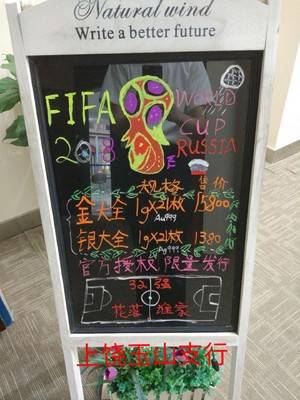 Natural wind
Write a better future
FIFA WORLD
2018 CUP
RUSSIA
规格 售价
金大全 1g×21枚 15800
Au999
银大全 1g×21枚 1380
Ag999
官方授权 限量发行
32强
花落谁家
上饶玉山支行